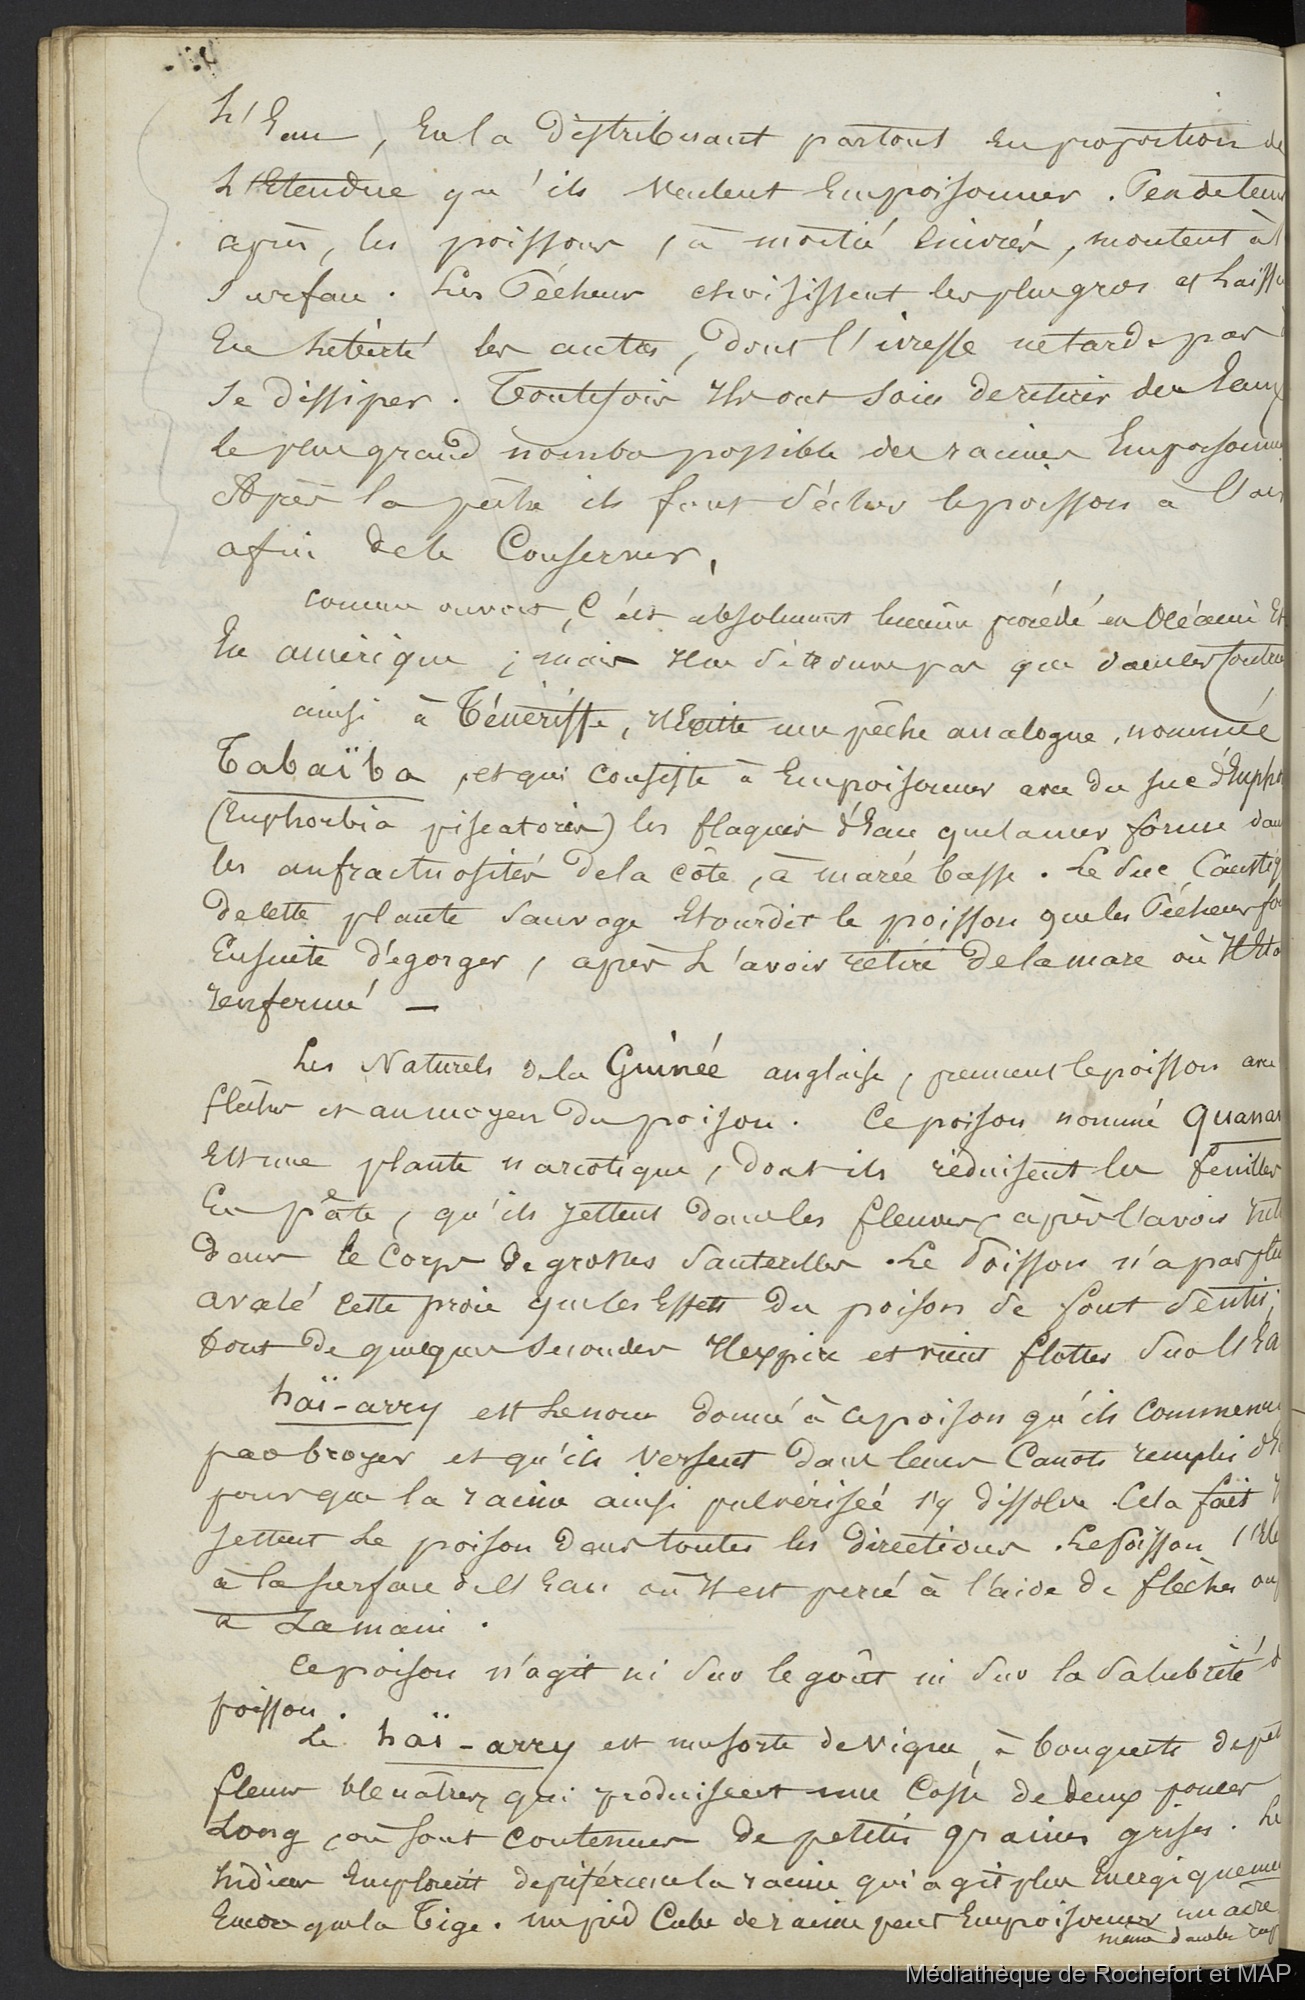 L'Eau, En la distribuant partout En proportion de
L'Etendue qu'ils veulent Empoisonner. Peu de tems
après, les poissons, à moitié Enivrés, montent à
Surface. Les Pêcheurs choisissent les plus gros et Laisse
En Liberté les autres, dont l'ivresse ne tarde pas
se dissiper. Toutefois Ils ont soin de retirer des Eaux
le plus grand nombre possible des racines Empoisonn
Après la pêche ils font sécher le poisson à l'air
afin de le Conserver,
comme on voit, C'est absolument le même procédé en Océanie Et
En amérique ; mais Il ne se trouve pas que dans les
ainsi à Ténériffe, Il Existe une pêche analogue, nommée
Tabaïba, et qui consiste à Empoisonner avec du suc d'Eupho
(Euphorbia piscatoria) les flaques d'Eau que la mer forme dan
les anfractuosités de la côte, à marée basse. Le Suc Caustiq
de cette plante sauvage Etourdit le poisson que les Pêcheurs fo
Ensuite d'égorger, après L'avoir retiré de la mare où Il Eta
renfermé —
Les Naturels de la Guinée anglaise, prennent le poisson avec
flèches et au moyen du poison. Ce poison nommé Quanan
Est une plante narcotique, dont ils réduisent les feuilles
En pâte, qu'ils jettent dans les fleuves, après l'avoir
dans le Corps de grosses Sauterelles. Le Poisson n'a pas plu
avalé cette proie que les Effets du poison se font sentir;
bout de quelques secondes Il expire et vient flotter sur l'Ea
haï-arry est le nom donné à ce poison qu'ils commen
par broyer et qu'ils versent dans leurs Canots remplis d'E
pour que la racine ainsi pulvérisée s'y dissolve. Cela fait
jettent Le poison dans toutes les directions. Le Poisson
à la surface de l'Eau où Il est percé à l'aide de flèches ou
à La main.
Ce poison n'agit ni sur le goût ni sur la salubrité d
poisson.
Le haï-arry est une sorte de vigne, à bouquets de pet
fleurs bleuâtres, qui produisent une Cosse de deux pouces
Long, où sont contenues de petites graines grises. Le
Indiens Emploient de préférence la racine qui agit plus Energiqueme
Encore que la Tige. un pied Cube de racine peut Empoisonner un acre
même dans les